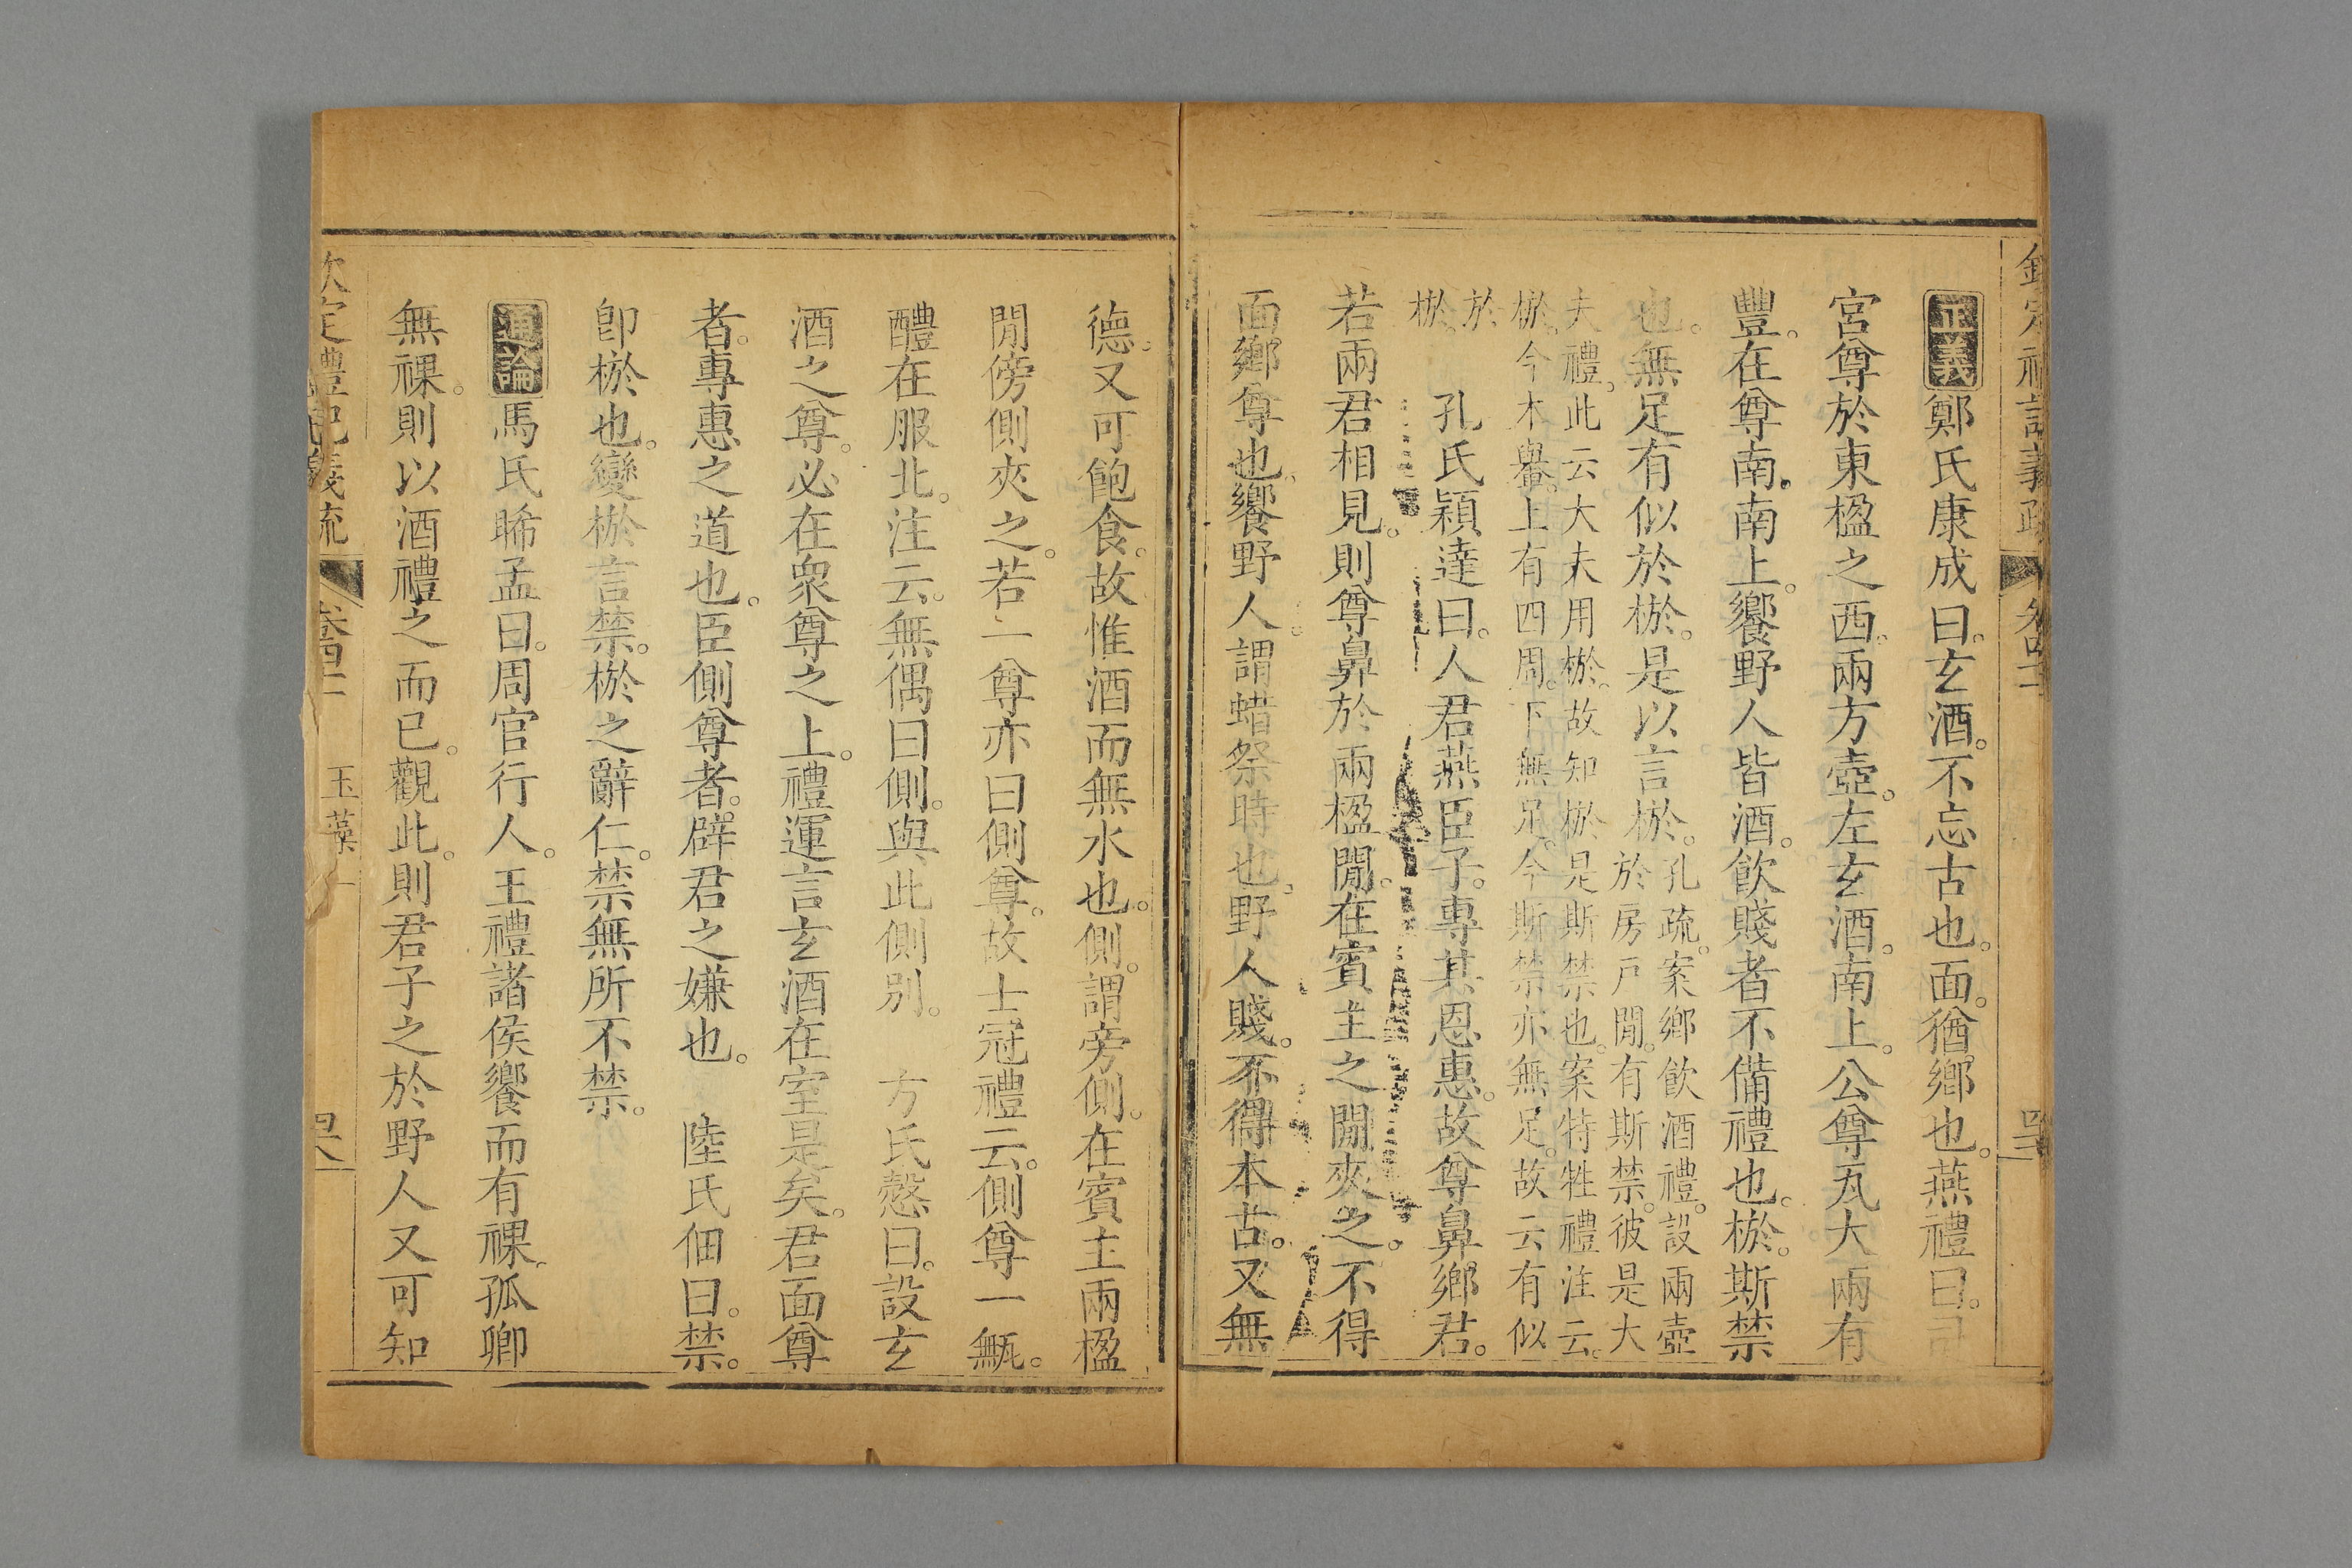 正義鄭氏康成曰。玄酒。不忘古也。面。猶鄉也。燕禮曰。司
宮尊於東楹之西。兩方壺。左玄酒。南上。公尊瓦大兩有
豐。在尊南。南上。饗野人皆酒。飲賤者不備禮也。棜。斯禁
也。無足有似於棜。是以言棜。孔疏。案鄉飲酒禮。設兩壺
於房戶閒。有斯禁。彼是大
夫禮。此云大夫用棜。故知棜是斯禁也。案特牲禮注云。
棜。今木轝。上有四周。下無足。今斯禁亦無足。故云有似
於
棜。 孔氏穎達曰。人君燕臣子。專其恩惠。故尊鼻鄉君。
若兩君相見。則尊鼻於兩楹閒。在賓主之閒夾之。不得
面鄉尊也。饗野人。謂蜡祭時也。野人賤。不得本古。又無
德。又可飽食。故惟酒而無水也。側。謂旁側。在賓主兩楹
閒傍側夾之。若一尊亦曰側尊。故士冠禮云。側尊一甒。
醴在服北。注云。無偶曰側。與此側別。 方氏慤曰。設玄
酒之尊。必在眾尊之上。禮運言玄酒在室是矣。君面尊
者。專惠之道也。臣側尊者。辟君之嫌也。 陸氏佃曰。禁。
卽棜也。變棜言禁。棜之辭仁。禁無所不禁。
通論馬氏晞孟曰。周官行人。王禮諸侯饗而有祼。孤卿
無祼。則以酒禮之而已。觀此。則君子之於野人又可知
欽定禮記義疏 卷四十一 玉藻 一